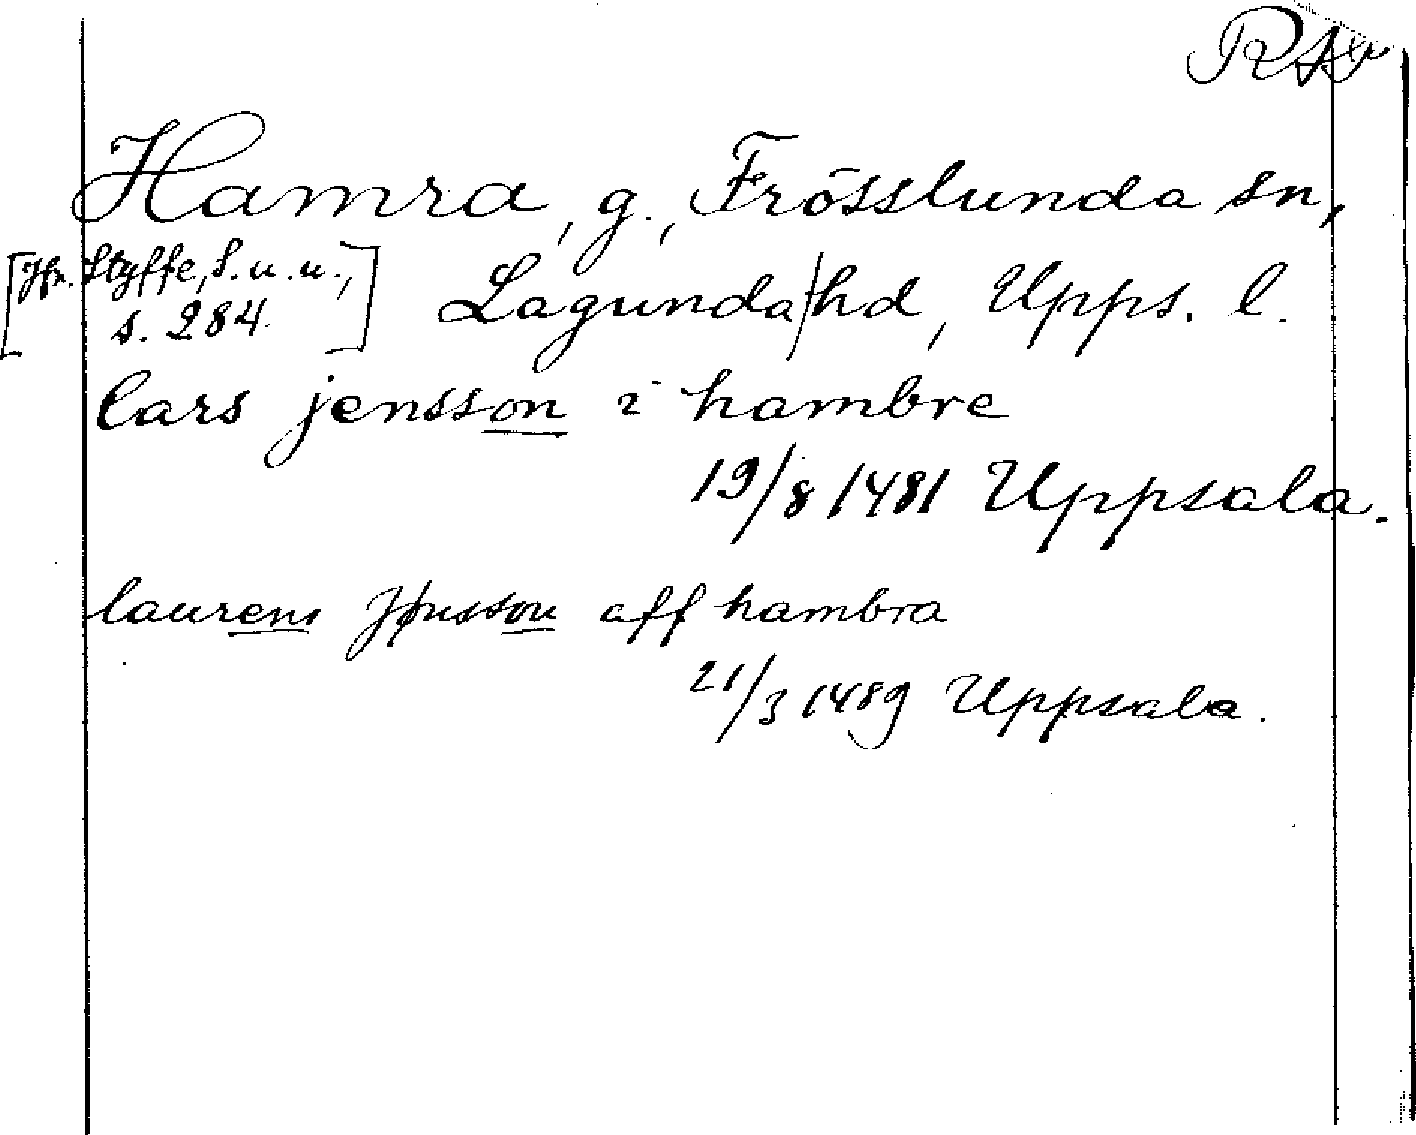 Hamra, g., Frösslunda sn,
[Jfr. Styffe, S.u.u., s. 284.] Lagunda hd, Upps. l.
lars jensson i hambre
19/8 1481 Uppsala.
laurens Jønsson aff hambra
21/3 1489 Uppsala.